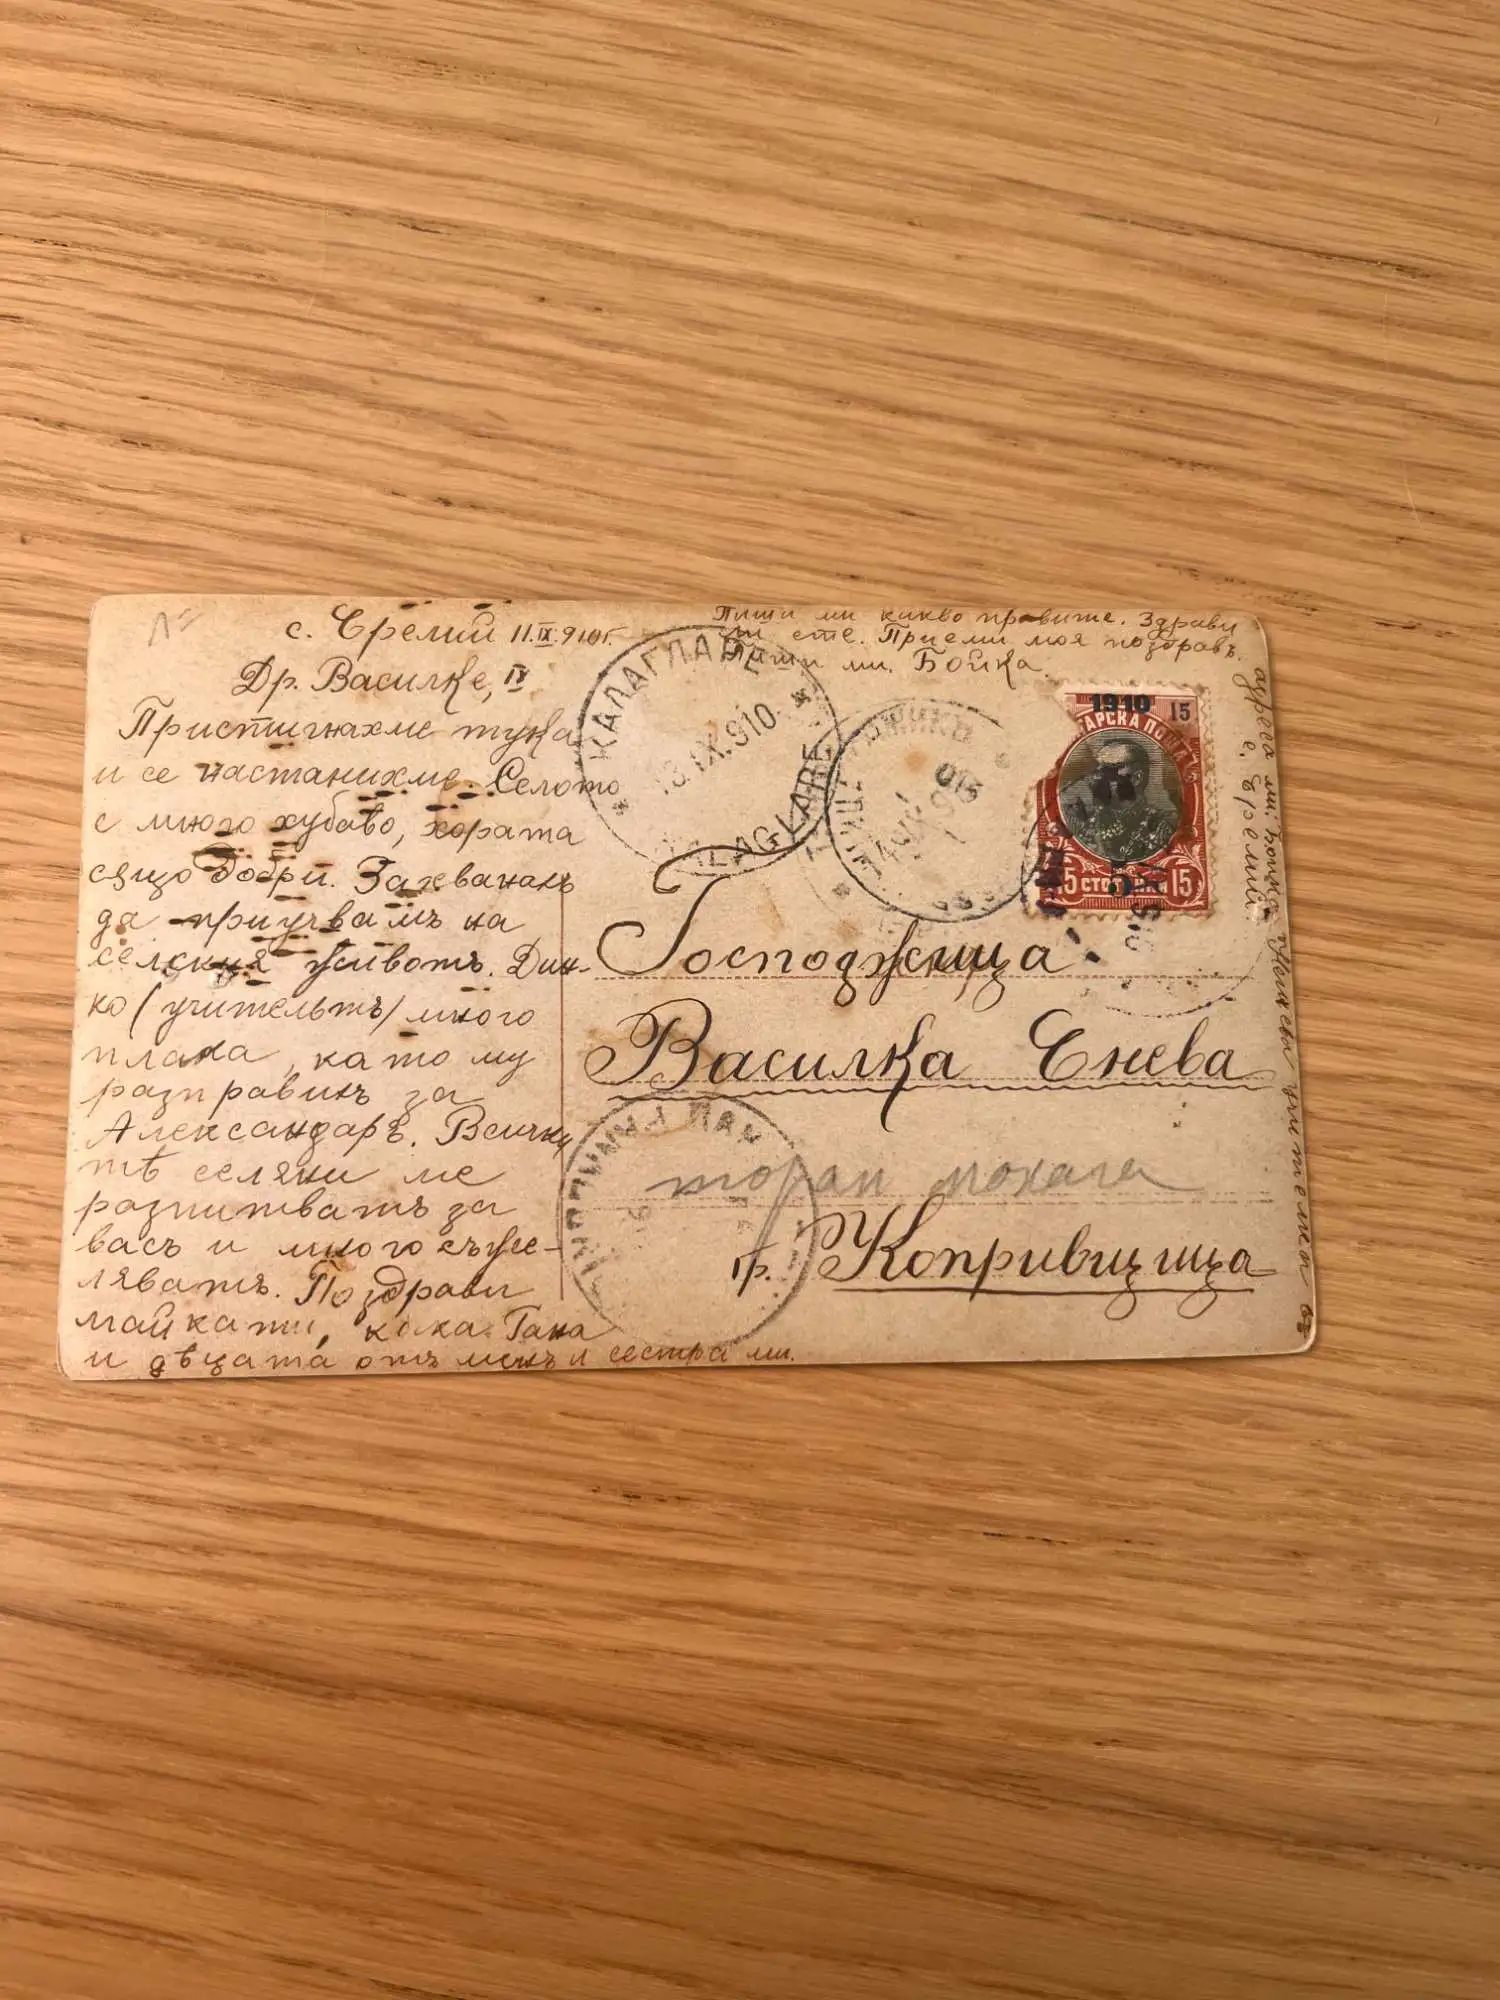 с. Еремий 11.IX.910г.
Др. Василке, IV
Пристигнахме тука
и се настанихме. Селото
е много хубаво, хората
също добри. Захванахъ
да приучвамъ на
селския животъ. Дин-
ко (учительтъ) много
плака, като му
разправихъ за
Александаръ. Всички
тѣ селяни ме
разпитватъ за
васъ и много съжее-
ляватъ. Поздрави
майка ти, кака Гана
и дѣцата отъ менъ и сестра ми.
Пиши ми какво правите. Здрави
ли сте. Приеми моя поздравъ.
Пиши ми. Бойка
адреса ми: Бойка учителка въ
с. Еремий.
КАЛАГЛАРЕ
13.IX.910
KALAGLARE
1910
БЪЛГАРСКА ПОЩА 15
5
15 СТОТИНКИ 15
Госпоџица
Василка Енева
гр. Копривщица